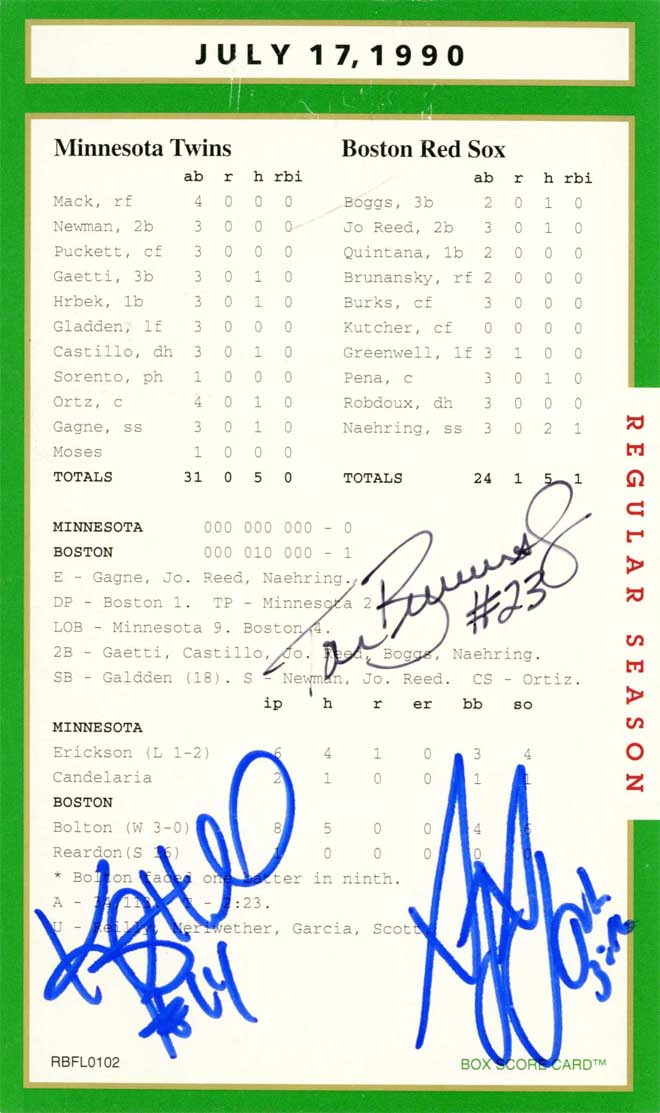 JULY 17, 1990
Minnesota Twins
ab r h rbi
Mack, rf 4 0 0 0
Newman, 2b 3 0 0 0
Puckett, cf 3 0 0 0
Gaetti, 3b 3 0 1 0
Hrbek, 1b 3 0 1 0
Gladden, lf 3 0 0 0
Castillo, dh 3 0 1 0
Sorento, ph 1 0 0 0
Ortz, c 4 0 1 0
Gagne, ss 3 0 1 0
Moses 1 0 0 0
TOTALS 31 0 5 0
Boston Red Sox
ab r h rbi
Boggs, 3b 2 0 1 0
Jo Reed, 2b 3 0 1 0
Quintana, 1b 2 0 0 0
Brunansky, rf 2 0 0 0
Burks, cf 3 0 0 0
Kutcher, cf 0 0 0 0
Greenwell, lf 3 1 0 0
Pena, c 3 0 1 0
Robdoux, dh 3 0 0 0
Naehring, ss 3 0 2 1
TOTALS 24 1 5 1
MINNESOTA 000 000 000 - 0
BOSTON 000 010 000 - 1
E - Gagne, Jo. Reed, Naehring.
DP - Boston 1. TP - Minnesota 2
LOB - Minnesota 9. Boston 4.
2B - Gaetti, Castillo, Jo. Reed, Boggs, Naehring.
SB - Galdden (18). S - Newman, Jo. Reed. CS - Ortiz.
#23
ip h r er bb so
MINNESOTA
Erickson (L 1-2) 6 4 1 0 3 4
Candelaria 2 1 0 0 1 1
BOSTON
Bolton (W 3-0) 8 5 0 0 4 6
Reardon(S 16) 1 0 0 0 0 0
* Bolton faced one batter in ninth.
A - 34,113. T - 2:23.
U - Reilly, Meriwether, Garcia, Scott
#14
RBFL0102
BOX SCORE CARD™
REGULAR SEASON